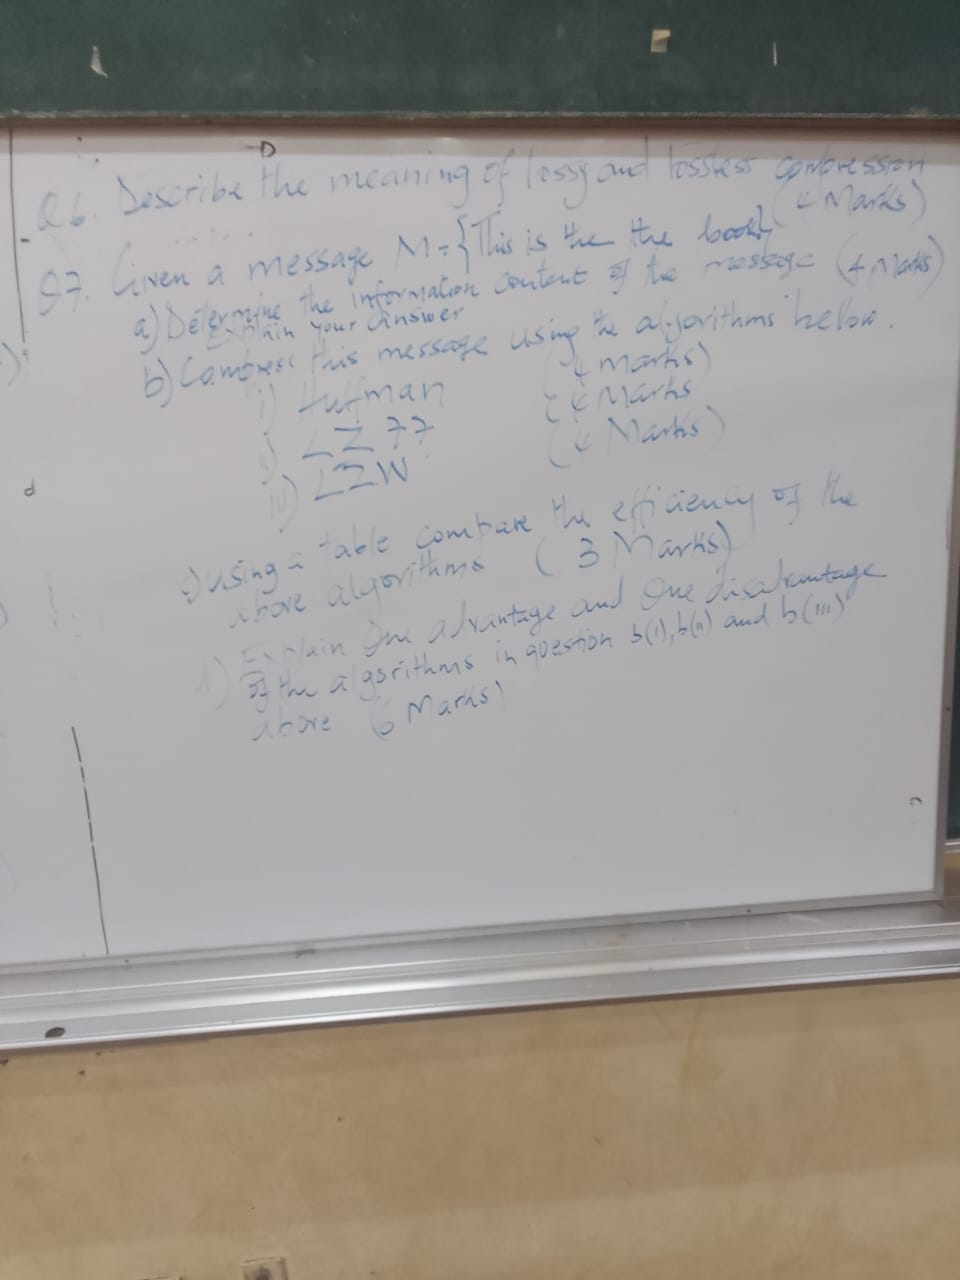 Q6. Describe the meaning of lossy and lossless compression
(4 Marks)
Q7. Given a message M = {This is the the book}
a) Determine the information content of the message (4 Marks)
Explain your answer
b) Compress this message using the algorithms bellow.
i) Huffman (4 marks)
ii) LZ77 (4 Marks
iii) LZW (4 Marks)
c) using a table compare the efficiency of the
above algorithms (3 Marks)
d) Explain One advantage and One disadvantage
of the algorithms in question b(i), b(ii) and b(iii)
above (6 Marks)
D
d